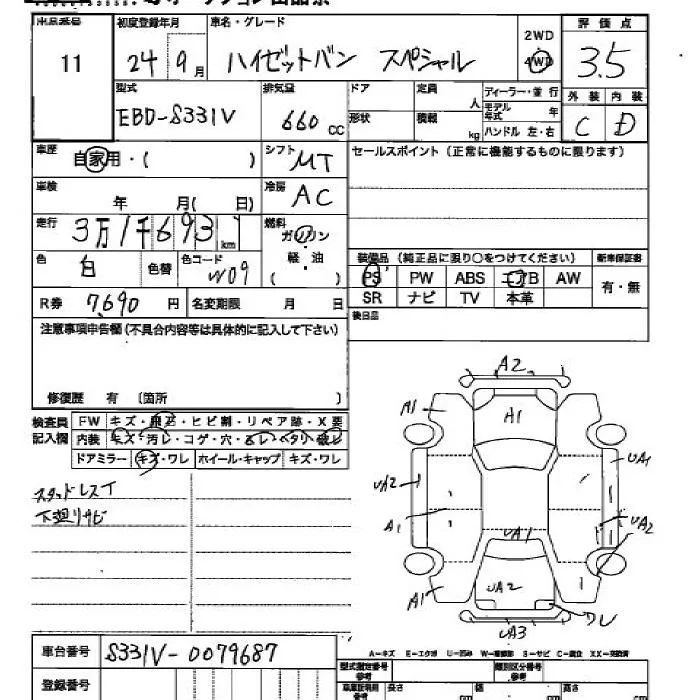 出品番号 初度登録年月 車名・グレード 2WD 4WD 評価点
11 24 9月 ハイゼットバン スペシャル 3.5
型式 排気量 ドア 定員 人 ディーラー・並行 外装 内装
EBD-S331V 660 CC 形状 積載 kg モデル年式 年 ハンドル 左・右 C D
車歴 自家用・( ) シフト MT セールスポイント(正常に機能するものに限ります)
車検 年 月( 日) 冷房 AC
走行 3万1千693 km 燃料 ガソリン
色 白 色替 色コード W09 軽・油 ( ) 装備品(純正品に限り○をつけてください) 新車保証書
PS PW ABS エアB AW 有・無
R券 7,690 円 名変期限 月 日 SR ナビ TV 本革
注意事項申告欄(不具合内容等は具体的に記入して下さい) 後日品
修復歴 有 〔箇所 〕
検査員記入欄 FW キズ・飛石・ヒビ割・リペア跡・X要
内装 キズ・汚レ・コゲ・穴・スレ・ヘタリ・破レ
ドアミラー キズ・ワレ ホイール・キャップ キズ・ワレ
スタッドレスT
下廻リサビ
A2
A1 A1
UA2 UA1
A1 UA1 UA2
A1 UA2 ワレ
UA3
A-キズ E-エクボ U-凹み W-補修跡 S-サビ C-腐食 XX-交換済
車台番号 S331V-0079687
型式指定番号 類別区分番号
登録番号 長さ cm 幅 cm 高さ cm